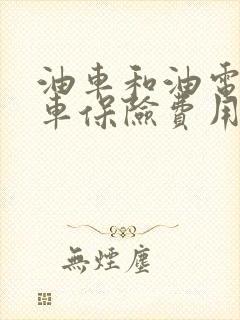 油車和油電
車保險費用
無煙塵